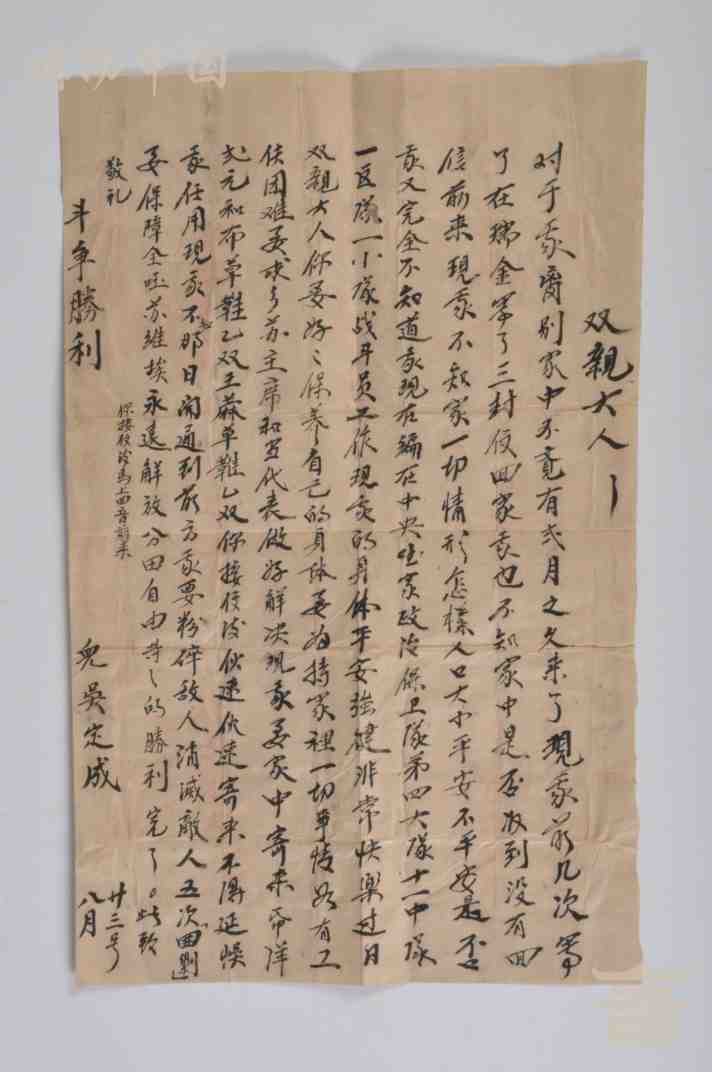 双親大人
对于家處别家中不竟有弍月之久来了現我前几次写
了在瑞金军了三封信回家我也不知家中是否收到没有回
信前来現我不知家一切情形怎樣人口大小平安不平安是否
我又完全不知道我現在编在中央國家政治保卫隊第四大隊十一中隊
一区隊一小隊战斗员工作現我的身体平安強健非常快樂过日
双親大人你要好々保养自己的身体要为持家裡一切事情如有工
作困难要求乡苏主席和代表做好解决現我要家中寄来大洋
弍元和布草鞋乙双王蔴草鞋乙双你接信後伙速伙速寄来不得延悮
我任用現我不那日開通到前方我要粉碎敌人消滅敵人五次回剿」
要保障全苏維埃永遠解放分田自由等々的勝利完了。此致
敬礼
斗争勝利
你接校後馬上回音前来
兒吳定成
廿三号
八月